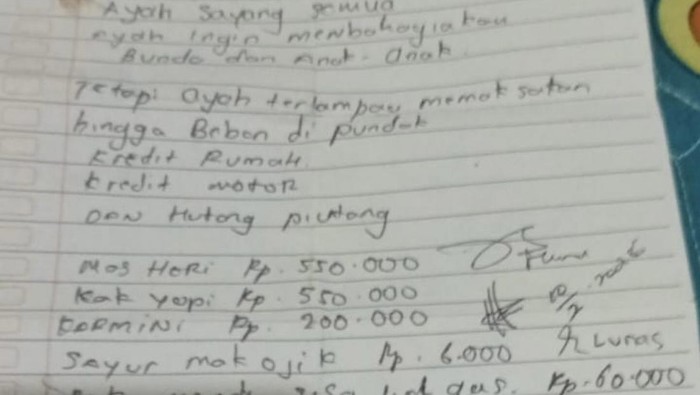 Ayah sayang semua
ayah Ingin menbahagiakan
Bunda dan Anak-anak
Tetapi ayah terlampau memaksakan
hingga Beban di pundak
Kredit Rumah.
kredit motor
DAN Hutang piutang
MAS HERI Rp. 550.000
Kak yopi Rp. 550.000
DARMINI Rp. 200.000
Sayur mak ojik Rp. 6.000 Lunas
gas. Rp. 60.000